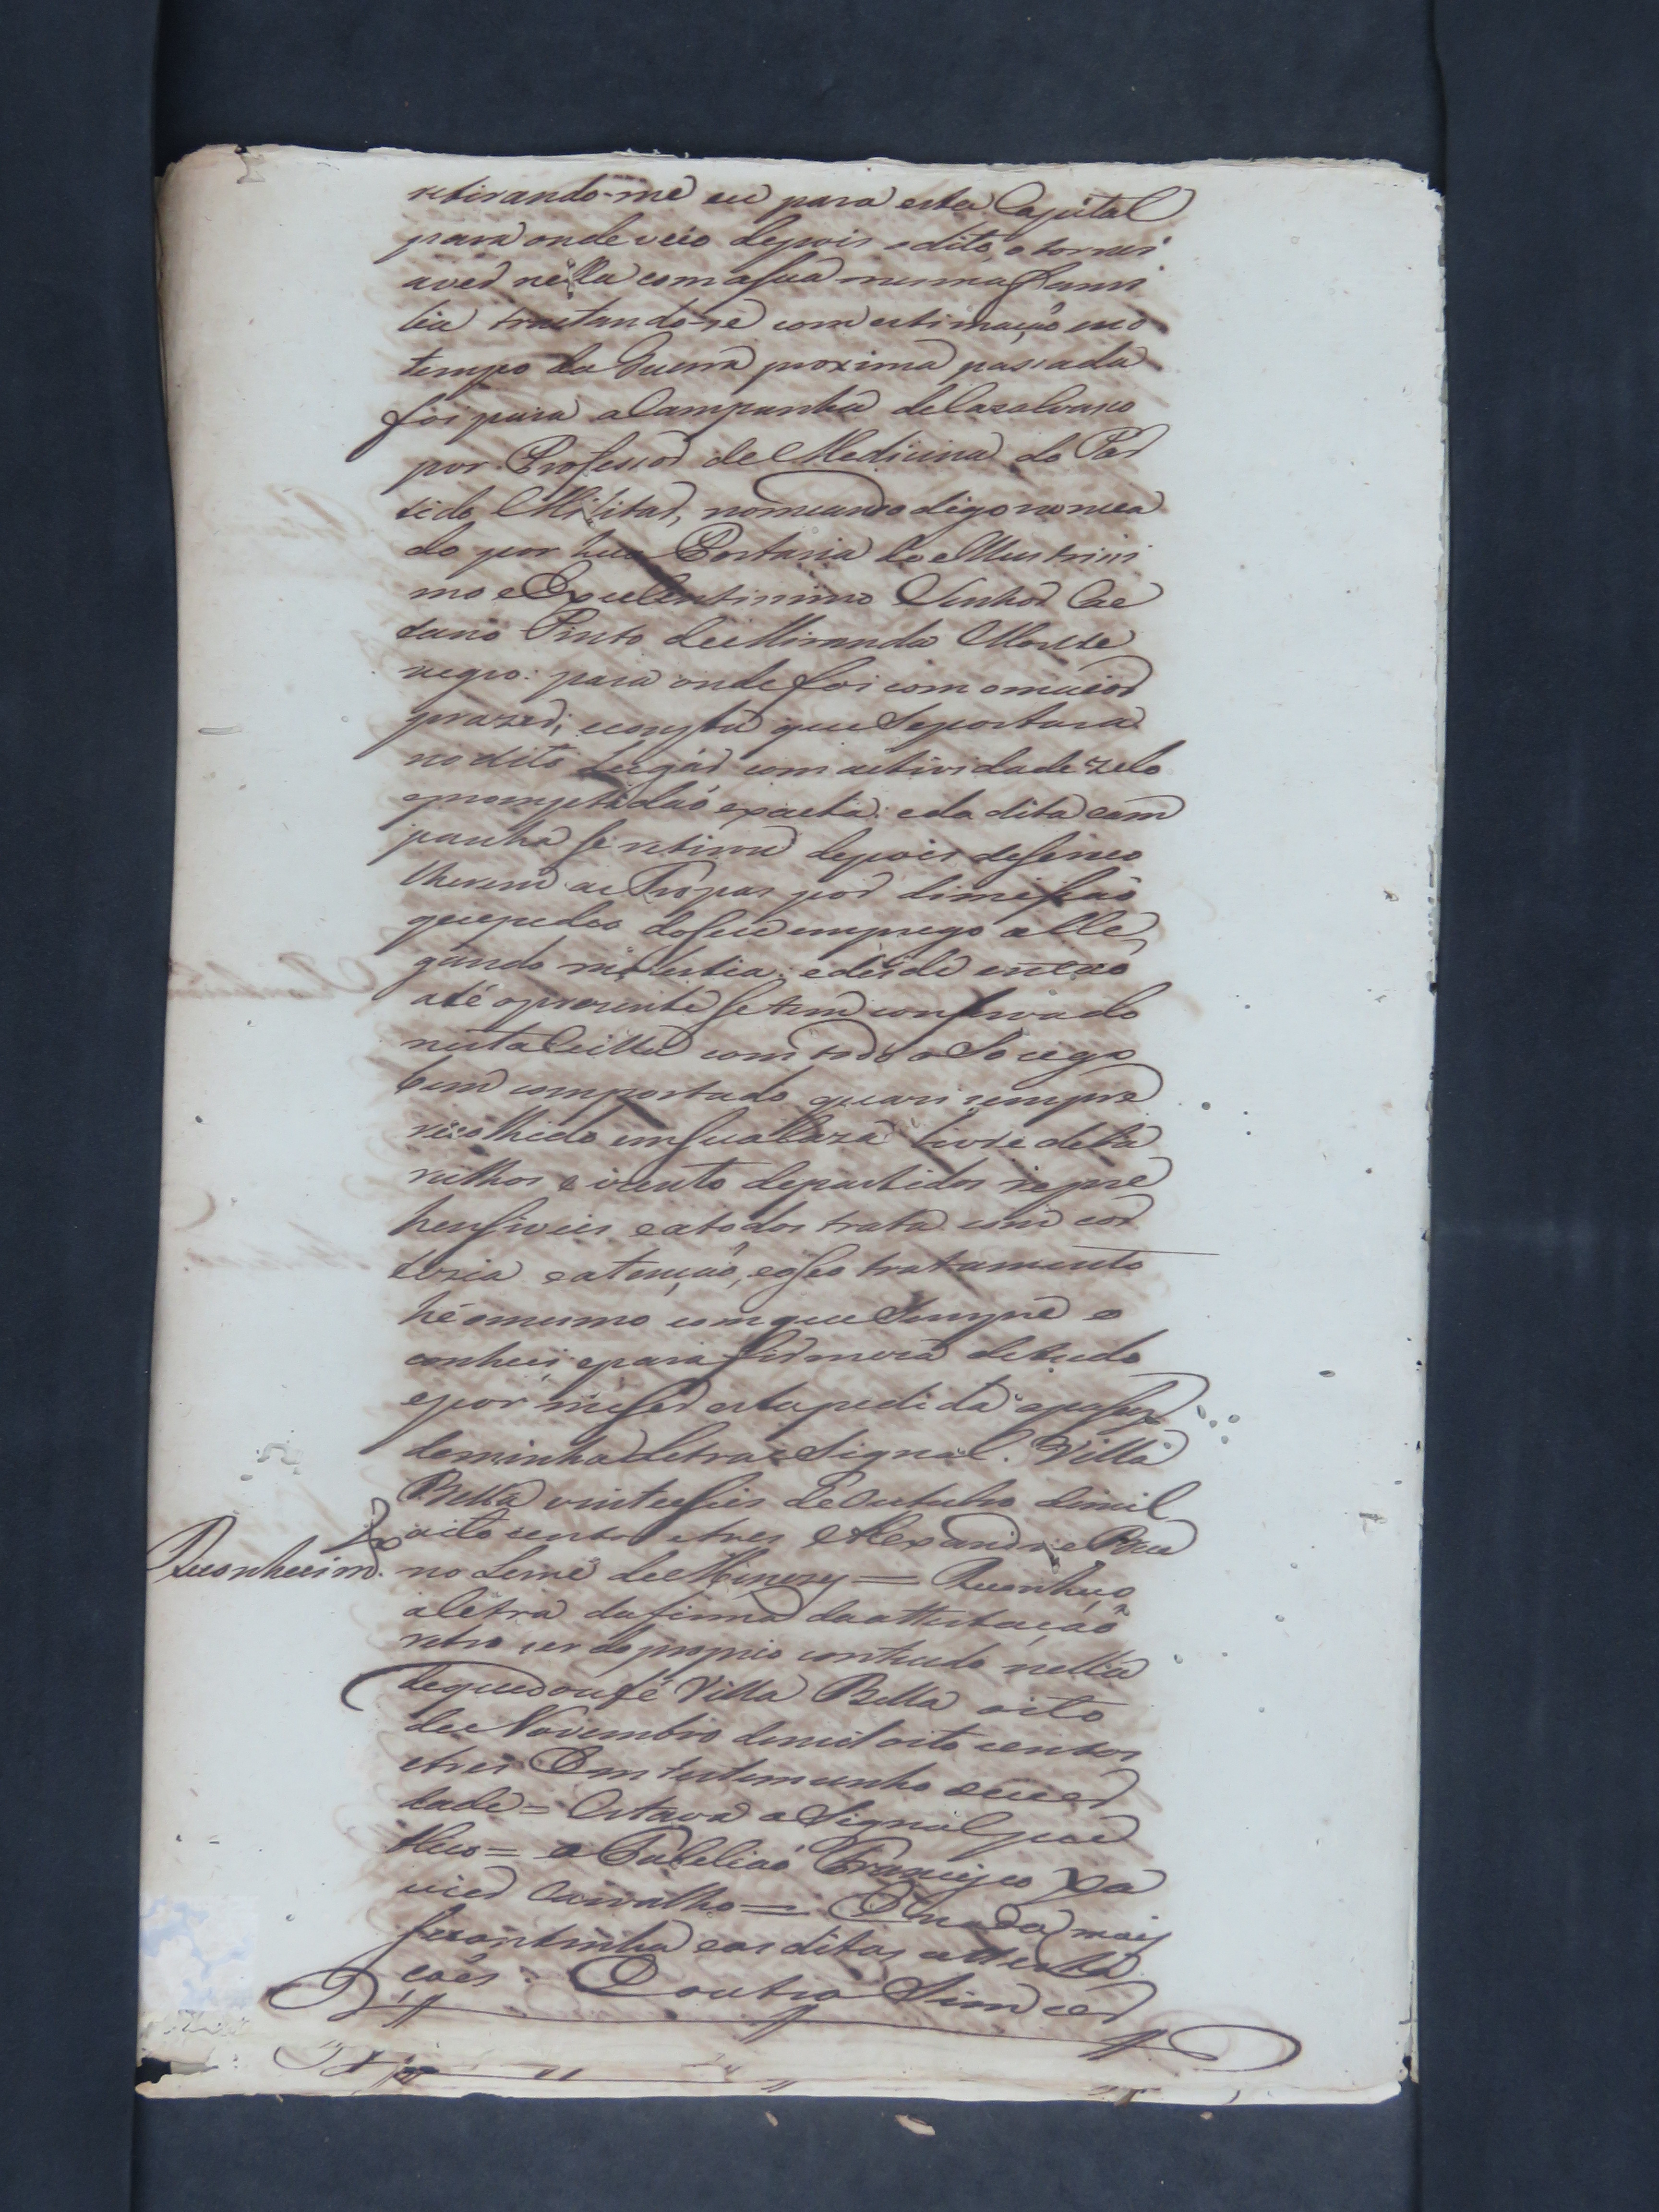 retirando-me eu para esta Capital
para onde veio depois o dito, o tornei
aver nella com a sua mesma fami
lia tractando-se com estimação, e no
tempo da Guerra proxima passada
foi para a Campanha de Cazalvasco
por Professor de Medicina do Par
tido Militar, nomeando digo nomea
do por hua Portaria do Illustrissi
mo e Excelentissimo Senhor Cae
tano Pinto de Miranda Monte
negro: para onde foi com o maior
prazer; e consta que se portara
no dito Lugar com actividade zelo
e promptidaõ exacta: e da dita cam
panha se retirou depois de se reco
lherem as Tropas por dimissaõ
que pedeo do seu emprego alle
gando molestia: e desde entaõ
até o presente se tem conservado
nesta Villa com todo o Socego
bem comportado quasi sempre
recolhido em sua Caza livre de ba
rulhos e izento de partidos repre
hensiveis e a todos trata com cor
tezia e atençaõ, e o seo tratamento
hé o mesmo com que Sempre o
conheci; e para firmeza de tudo
e por me ser esta pedida a passei
de minha letra e Signal. Villa
Bella vinte e seis de Outubro de mil
oito centos e tres Alexandre Bue
Reconhecim.to no Leme de Menezes = Reconheço
a letra da firma da attestaçaõ
retro ser do proprio contheudo nella
de que dou fé Villa Bella oito
de Novembro de mil oito centos
e tres Em testemunho de ver
dade = Estava o Signal pub
blico = o Tabeliaõ Francisco Xa
vier Carvalho = E nada mais
se continha e as ditas attesta
çoẽs. E outro Sim cer